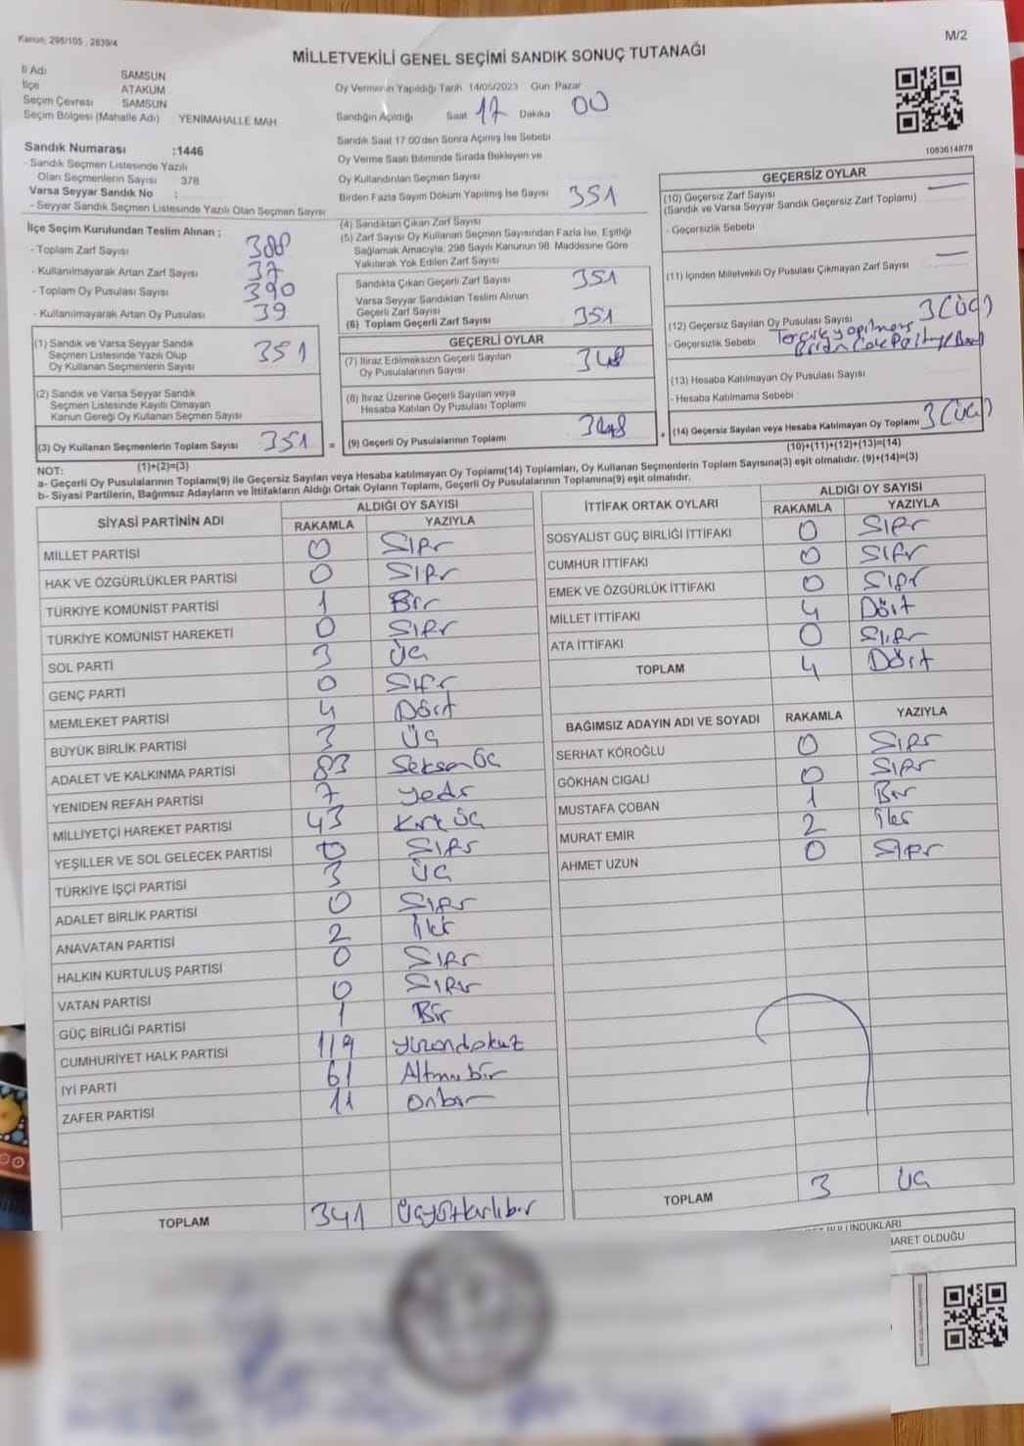 Kanun; 298/105 , 2839/4
M/2
MİLLETVEKİLİ GENEL SEÇİMİ SANDIK SONUÇ TUTANAĞI
İl Adı SAMSUN
İlçe ATAKUM
Seçim Çevresi SAMSUN
Seçim Bölgesi (Mahalle Adı) YENİMAHALLE MAH
Sandık Numarası :1446
- Sandık Seçmen Listesinde Yazılı
Olan Seçmenlerin Sayısı 378
Varsa Seyyar Sandık No :
- Seyyar Sandık Seçmen Listesinde Yazılı Olan Seçmen Sayısı
Oy Vermenin Yapıldığı Tarih 14/05/2023 Gün Pazar
Sandığın Açıldığı Saat 17 Dakika 00
Sandık Saat 17:00'den Sonra Açılmış İse Sebebi
Oy Verme Saati Bitiminde Sırada Bekleyen ve
Oy Kullandırılan Seçmen Sayısı
Birden Fazla Sayım Döküm Yapılmış İse Sayısı
1083614878
İlçe Seçim Kurulundan Teslim Alınan ;
- Toplam Zarf Sayısı 388
- Kullanılmayarak Artan Zarf Sayısı 37
- Toplam Oy Pusulası Sayısı 390
- Kullanılmayarak Artan Oy Pusulası 39
(1) Sandık ve Varsa Seyyar Sandık
Seçmen Listesinde Yazılı Olup
Oy Kullanan Seçmenlerin Sayısı 351
(2) Sandık ve Varsa Seyyar Sandık
Seçmen Listesinde Kayıtlı Olmayan
Kanun Gereği Oy Kullanan Seçmen Sayısı
(3) Oy Kullanan Seçmenlerin Toplam Sayısı 351 =
(1)+(2)=(3)
(4) Sandıktan Çıkan Zarf Sayısı 351
(5) Zarf Sayısı Oy Kullanan Seçmen Sayısından Fazla İse, Eşitliği
Sağlamak Amacıyla, 298 Sayılı Kanunun 98. Maddesine Göre
Yakılarak Yok Edilen Zarf Sayısı
Sandıkta Çıkan Geçerli Zarf Sayısı 351
Varsa Seyyar Sandıktan Teslim Alınan
Geçerli Zarf Sayısı
(6) Toplam Geçerli Zarf Sayısı 351
GEÇERLİ OYLAR
(7) İtiraz Edilmeksizin Geçerli Sayılan
Oy Pusulalarının Sayısı 348
(8) İtiraz Üzerine Geçerli Sayılan veya
Hesaba Katılan Oy Pusulası Toplamı
(9) Geçerli Oy Pusulalarının Toplamı 348 +
GEÇERSİZ OYLAR
(10) Geçersiz Zarf Sayısı
(Sandık ve Varsa Seyyar Sandık Geçersiz Zarf Toplamı)
- Geçersizlik Sebebi
(11) İçinden Milletvekili Oy Pusulası Çıkmayan Zarf Sayısı
(12) Geçersiz Sayılan Oy Pusulası Sayısı 3 (ÜÇ)
- Geçersizlik Sebebi
(13) Hesaba Katılmayan Oy Pusulası Sayısı
- Hesaba Katılmama Sebebi
(14) Geçersiz Sayılan veya Hesaba Katılmayan Oy Toplamı 3 (ÜÇ)
(10)+(11)+(12)+(13)=(14)
NOT:
a- Geçerli Oy Pusulalarının Toplam(9) ile Geçersiz Sayılan veya Hesaba katılmayan Oy Toplamı(14) Toplamları, Oy Kullanan Seçmenlerin Toplam Sayısına(3) eşit olmalıdır. (9)+(14)=(3)
b- Siyasi Partilerin, Bağımsız Adayların ve İttifakların Aldığı Ortak Oyların Toplamı, Geçerli Oy Pusulalarının Toplamına(9) eşit olmalıdır.
SİYASİ PARTİNİN ADI ALDIĞI OY SAYISI
RAKAMLA YAZIYLA
MİLLET PARTİSİ 0 Sıfır
HAK VE ÖZGÜRLÜKLER PARTİSİ 0 Sıfır
TÜRKİYE KOMÜNİST PARTİSİ 1 Bir
TÜRKİYE KOMÜNİST HAREKETİ 0 Sıfır
SOL PARTİ 3 Üç
GENÇ PARTİ 0 Sıfır
MEMLEKET PARTİSİ 4 Dört
BÜYÜK BİRLİK PARTİSİ 3 Üç
ADALET VE KALKINMA PARTİSİ 83 Seksen Üç
YENİDEN REFAH PARTİSİ 7 Yedi
MİLLİYETÇİ HAREKET PARTİSİ 43 Kırk Üç
YEŞİLLER VE SOL GELECEK PARTİSİ 0 Sıfır
TÜRKİYE İŞÇİ PARTİSİ 3 Üç
ADALET BİRLİK PARTİSİ 0 Sıfır
ANAVATAN PARTİSİ 2 İki
HALKIN KURTULUŞ PARTİSİ 0 Sıfır
VATAN PARTİSİ 0 Sıfır
GÜÇ BİRLİĞİ PARTİSİ 1 Bir
CUMHURİYET HALK PARTİSİ 119 Yüzondokuz
İYİ PARTİ 61 Altmışbir
ZAFER PARTİSİ 11 Onbir
TOPLAM 341 Üçyüzkırkbir
İTTİFAK ORTAK OYLARI ALDIĞI OY SAYISI
RAKAMLA YAZIYLA
SOSYALİST GÜÇ BİRLİĞİ İTTİFAKI 0 Sıfır
CUMHUR İTTİFAKI 0 Sıfır
EMEK VE ÖZGÜRLÜK İTTİFAKI 0 Sıfır
MİLLET İTTİFAKI 4 Dört
ATA İTTİFAKI 0 Sıfır
TOPLAM 4 Dört
BAĞIMSIZ ADAYIN ADI VE SOYADI RAKAMLA YAZIYLA
SERHAT KÖROĞLU 0 Sıfır
GÖKHAN CIGALI 0 Sıfır
MUSTAFA ÇOBAN 1 Bir
MURAT EMİR 2 İki
AHMET UZUN 0 Sıfır
TOPLAM 3 Üç
BULUNDUKLARI
İBARET OLDUĞU